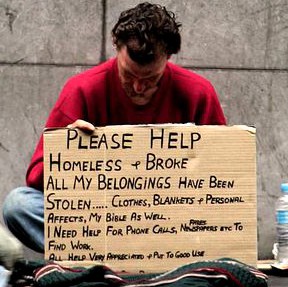 PLEASE HELP
HOMELESS + BROKE
ALL MY BELONGINGS HAVE BEEN
STOLEN..... CLOTHES, BLANKETS + PERSONAL
AFFECTS, MY BIBLE AS WELL.
I NEED HELP FOR PHONE CALLS, PAPERS NEWSPAPERS ETC TO
FIND WORK.
ALL HELP VERY APPRECIATED + PUT TO GOOD USE